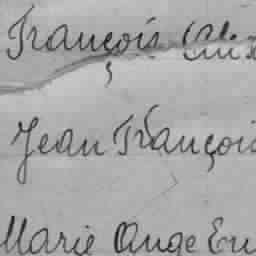 François
Jean François
Marie Ange